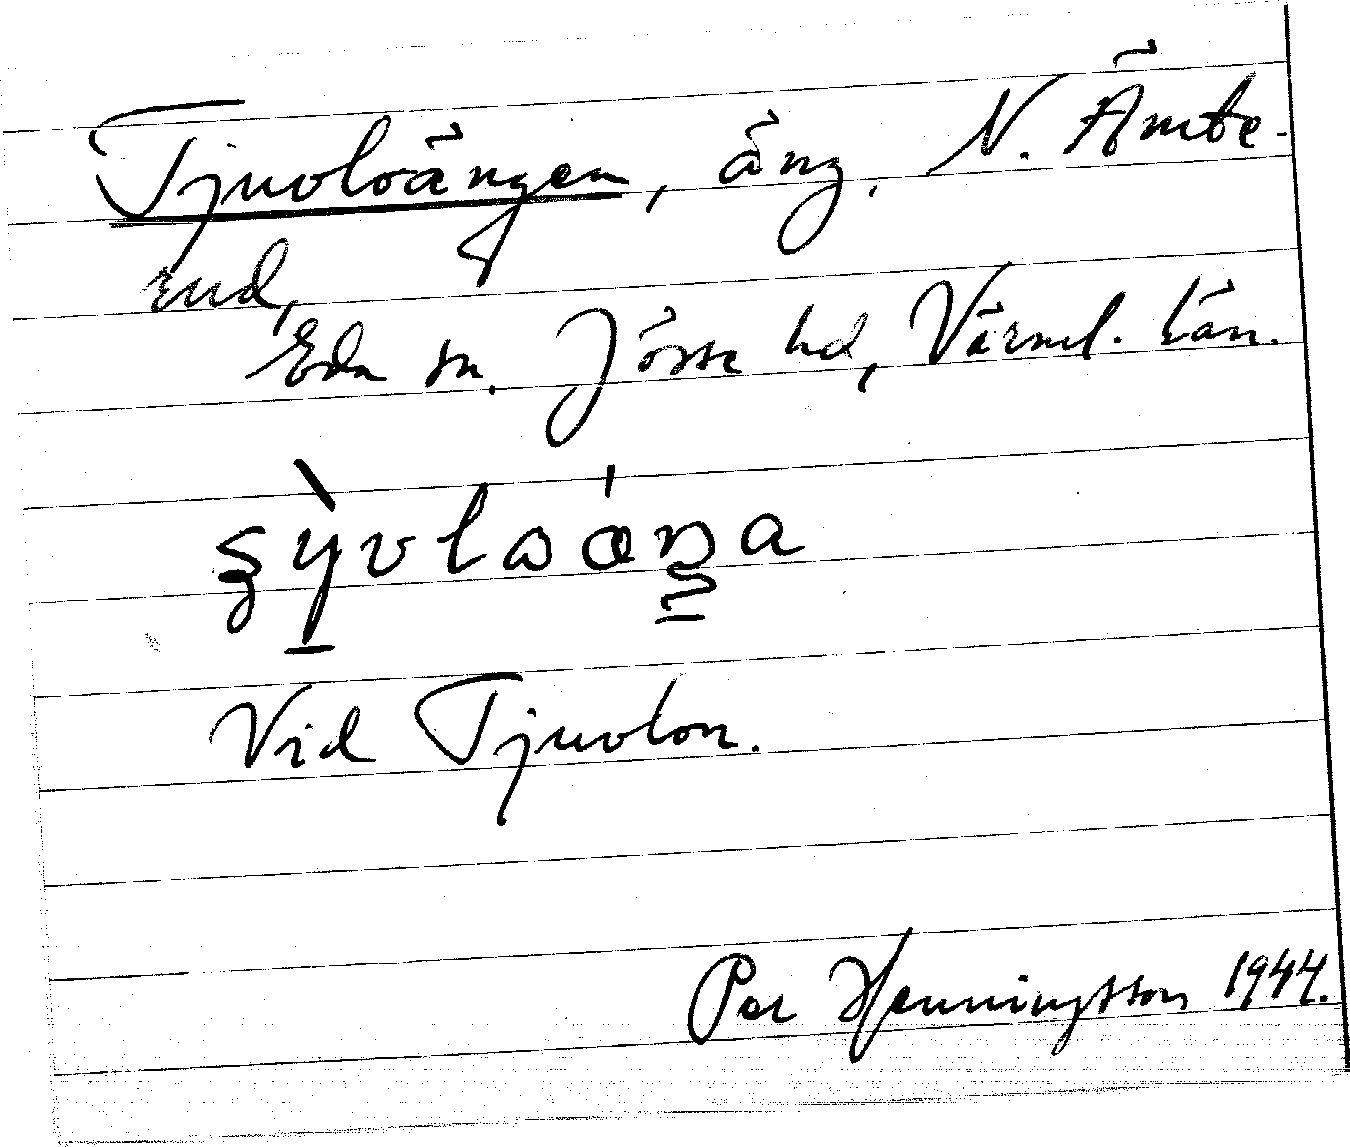 Tjuvloängen, äng. N. Ämte-
rud,
Eda sn. Jösse hd, Värml. län.
Vid Tjuvlon.
Per Henningsson 1944.